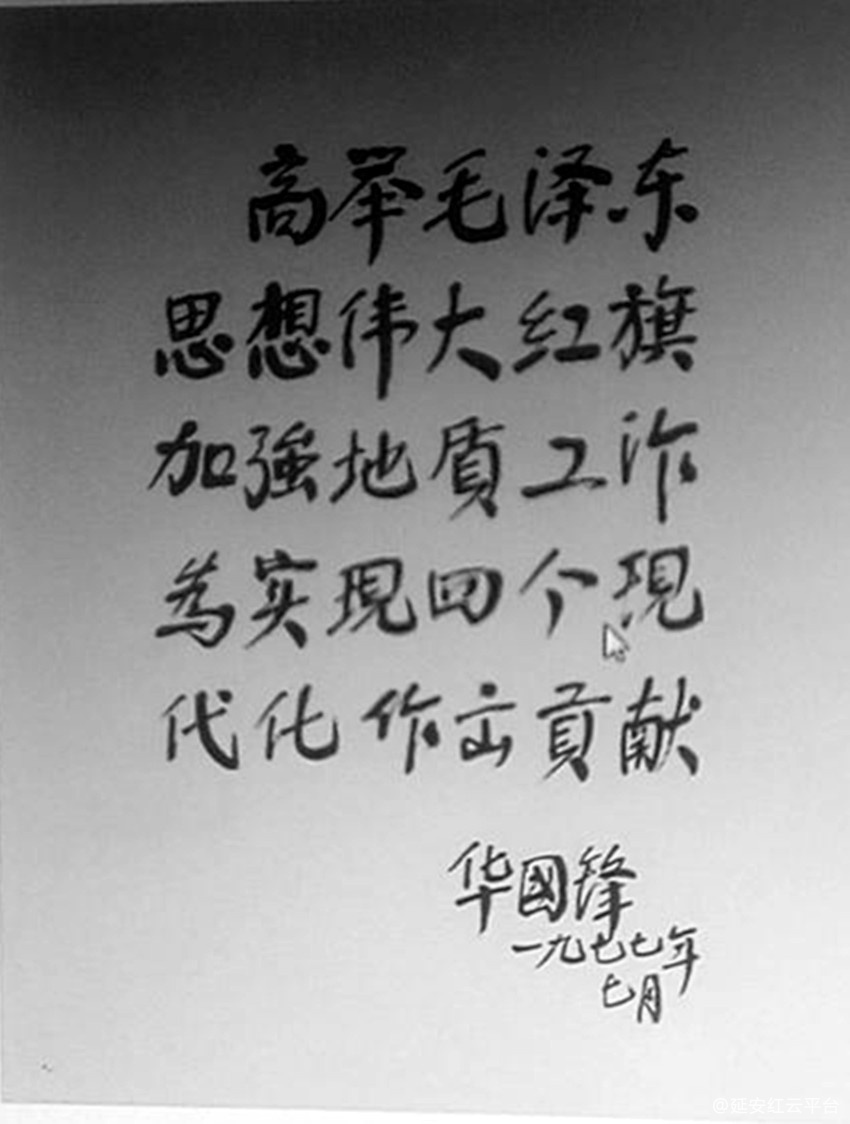 高举毛泽东
思想伟大红旗
加强地质工作
为实现四个现
代化作出贡献
华國锋
一九七七年
七月
@延安红云平台